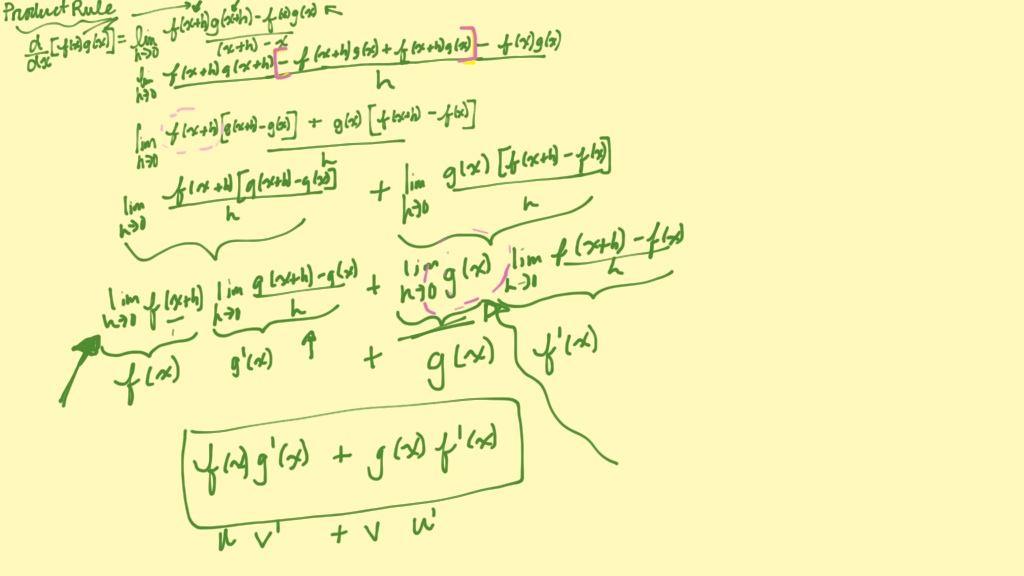 Product Rule
d/dx [f(x)g(x)] = lim h→0 f(x+h)g(x+h) - f(x)g(x) / (x+h) - x
lim h→0 f(x+h)g(x+h) [- f(x+h)g(x) + f(x+h)g(x)] - f(x)g(x) / h
lim h→0 f(x+h)[g(x+h)-g(x)] + g(x)[f(x+h) - f(x)] / h
lim h→0 f(x+h)[g(x+h)-g(x)] / h + lim h→0 g(x)[f(x+h) - f(x)] / h
lim h→0 f(x+h) lim h→0 g(x+h)-g(x) / h + lim h→0 g(x) lim h→0 f(x+h) - f(x) / h
f(x) g'(x) + g(x) f'(x)
f(x)g'(x) + g(x)f'(x)
u v' + v u'